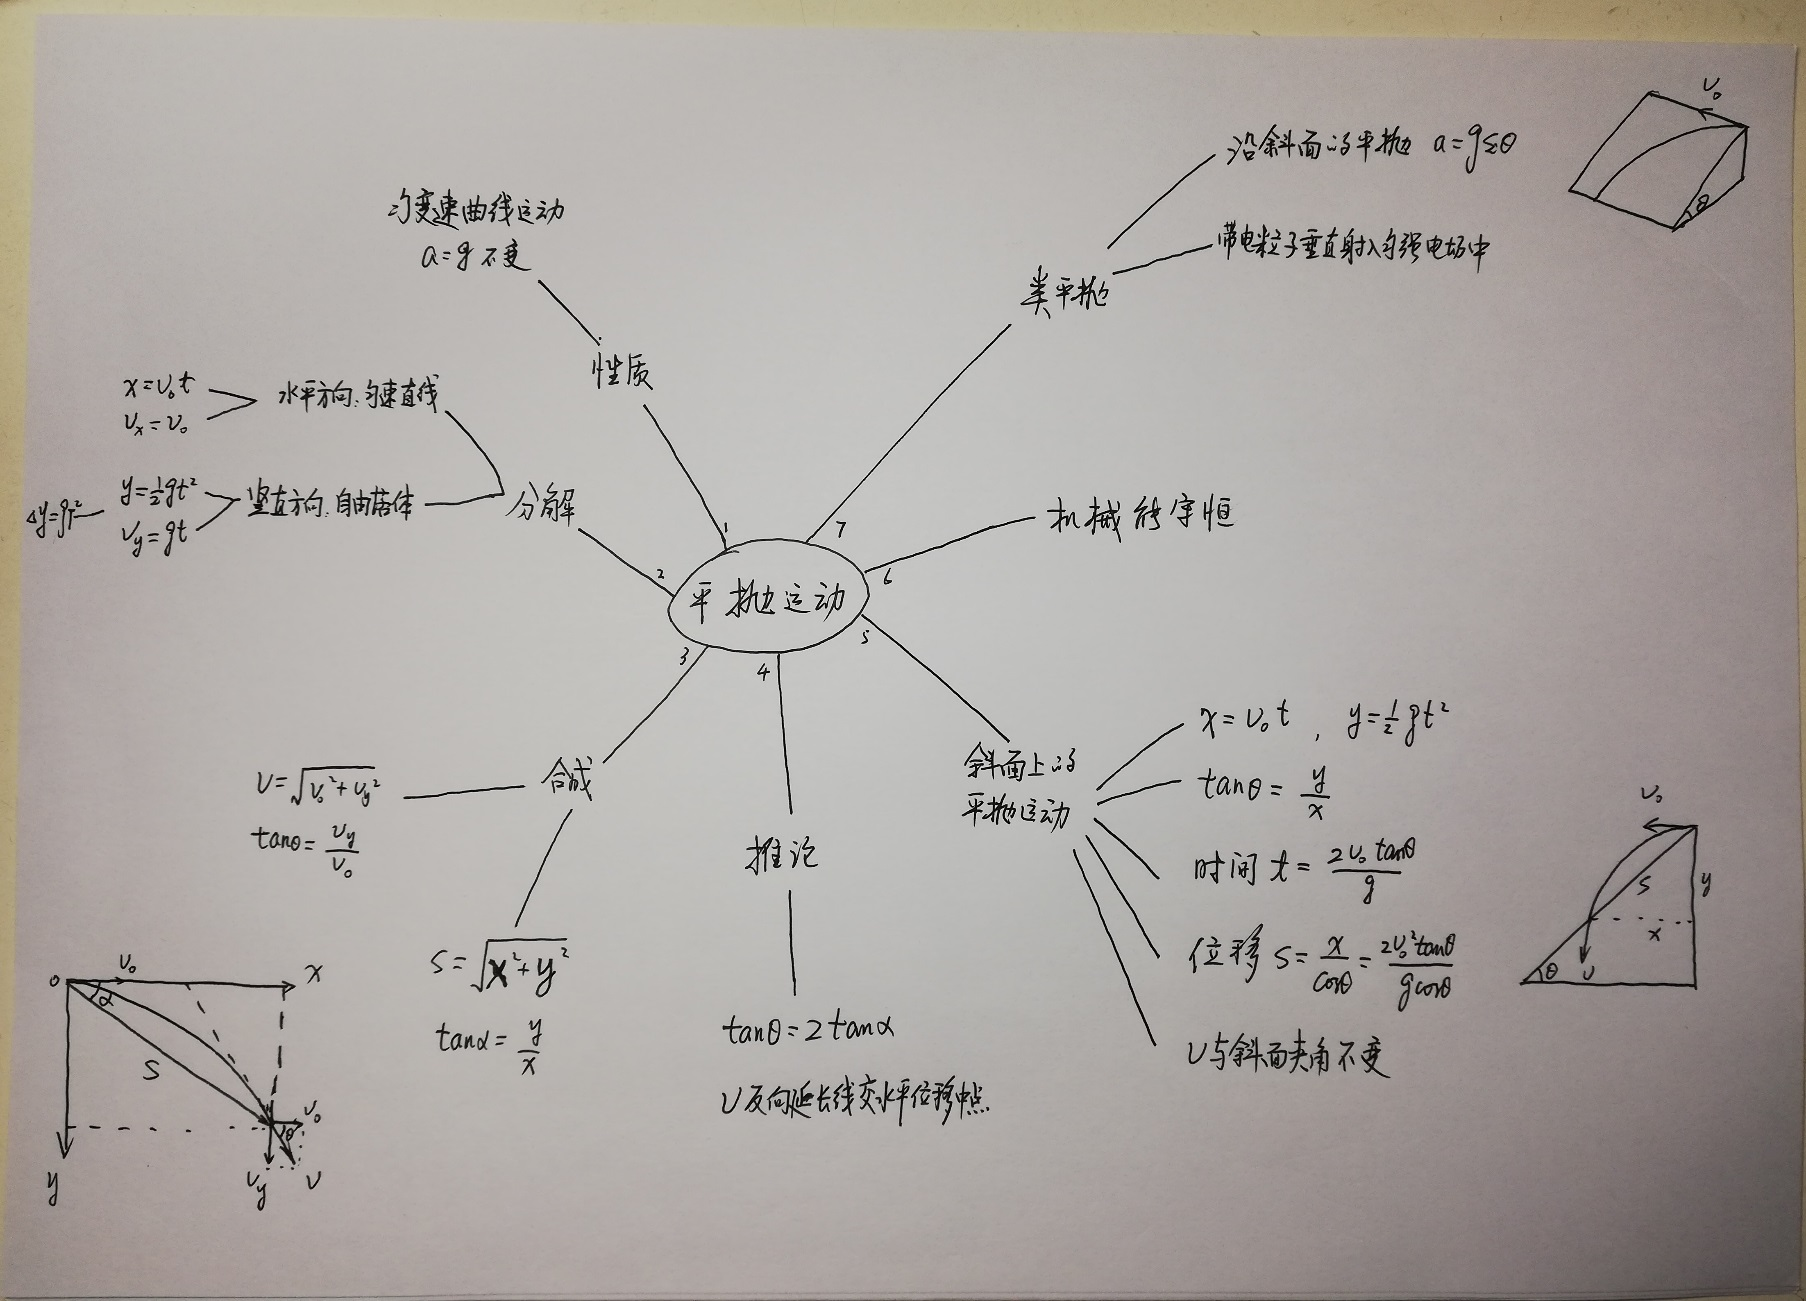 平抛运动
1
性质
匀变速曲线运动
a=g 不变
2
分解
水平方向:匀速直线
x=v₀t
vₓ=v₀
竖直方向:自由落体
y=½gt²
v_y=gt
Δy=gT²
3
合成
v=√(v₀²+v_y²)
tanθ=v_y/v₀
s=√(x²+y²)
tanα=y/x
4
推论
tanθ=2tanα
v反向延长线交水平位移中点
5
斜面上的
平抛运动
x=v₀t , y=½gt²
tanθ=y/x
时间 t=2v₀tanθ/g
位移 s=x/cosθ=2v₀²tanθ/gcosθ
v与斜面夹角不变
6
机械能守恒
7
类平抛
沿斜面的平抛 a=gsinθ
带电粒子垂直射入匀强电场中
v₀
θ
v₀
s
y
x
θ
v
o
v₀
x
α
s
v₀
θ
y
v_y
v